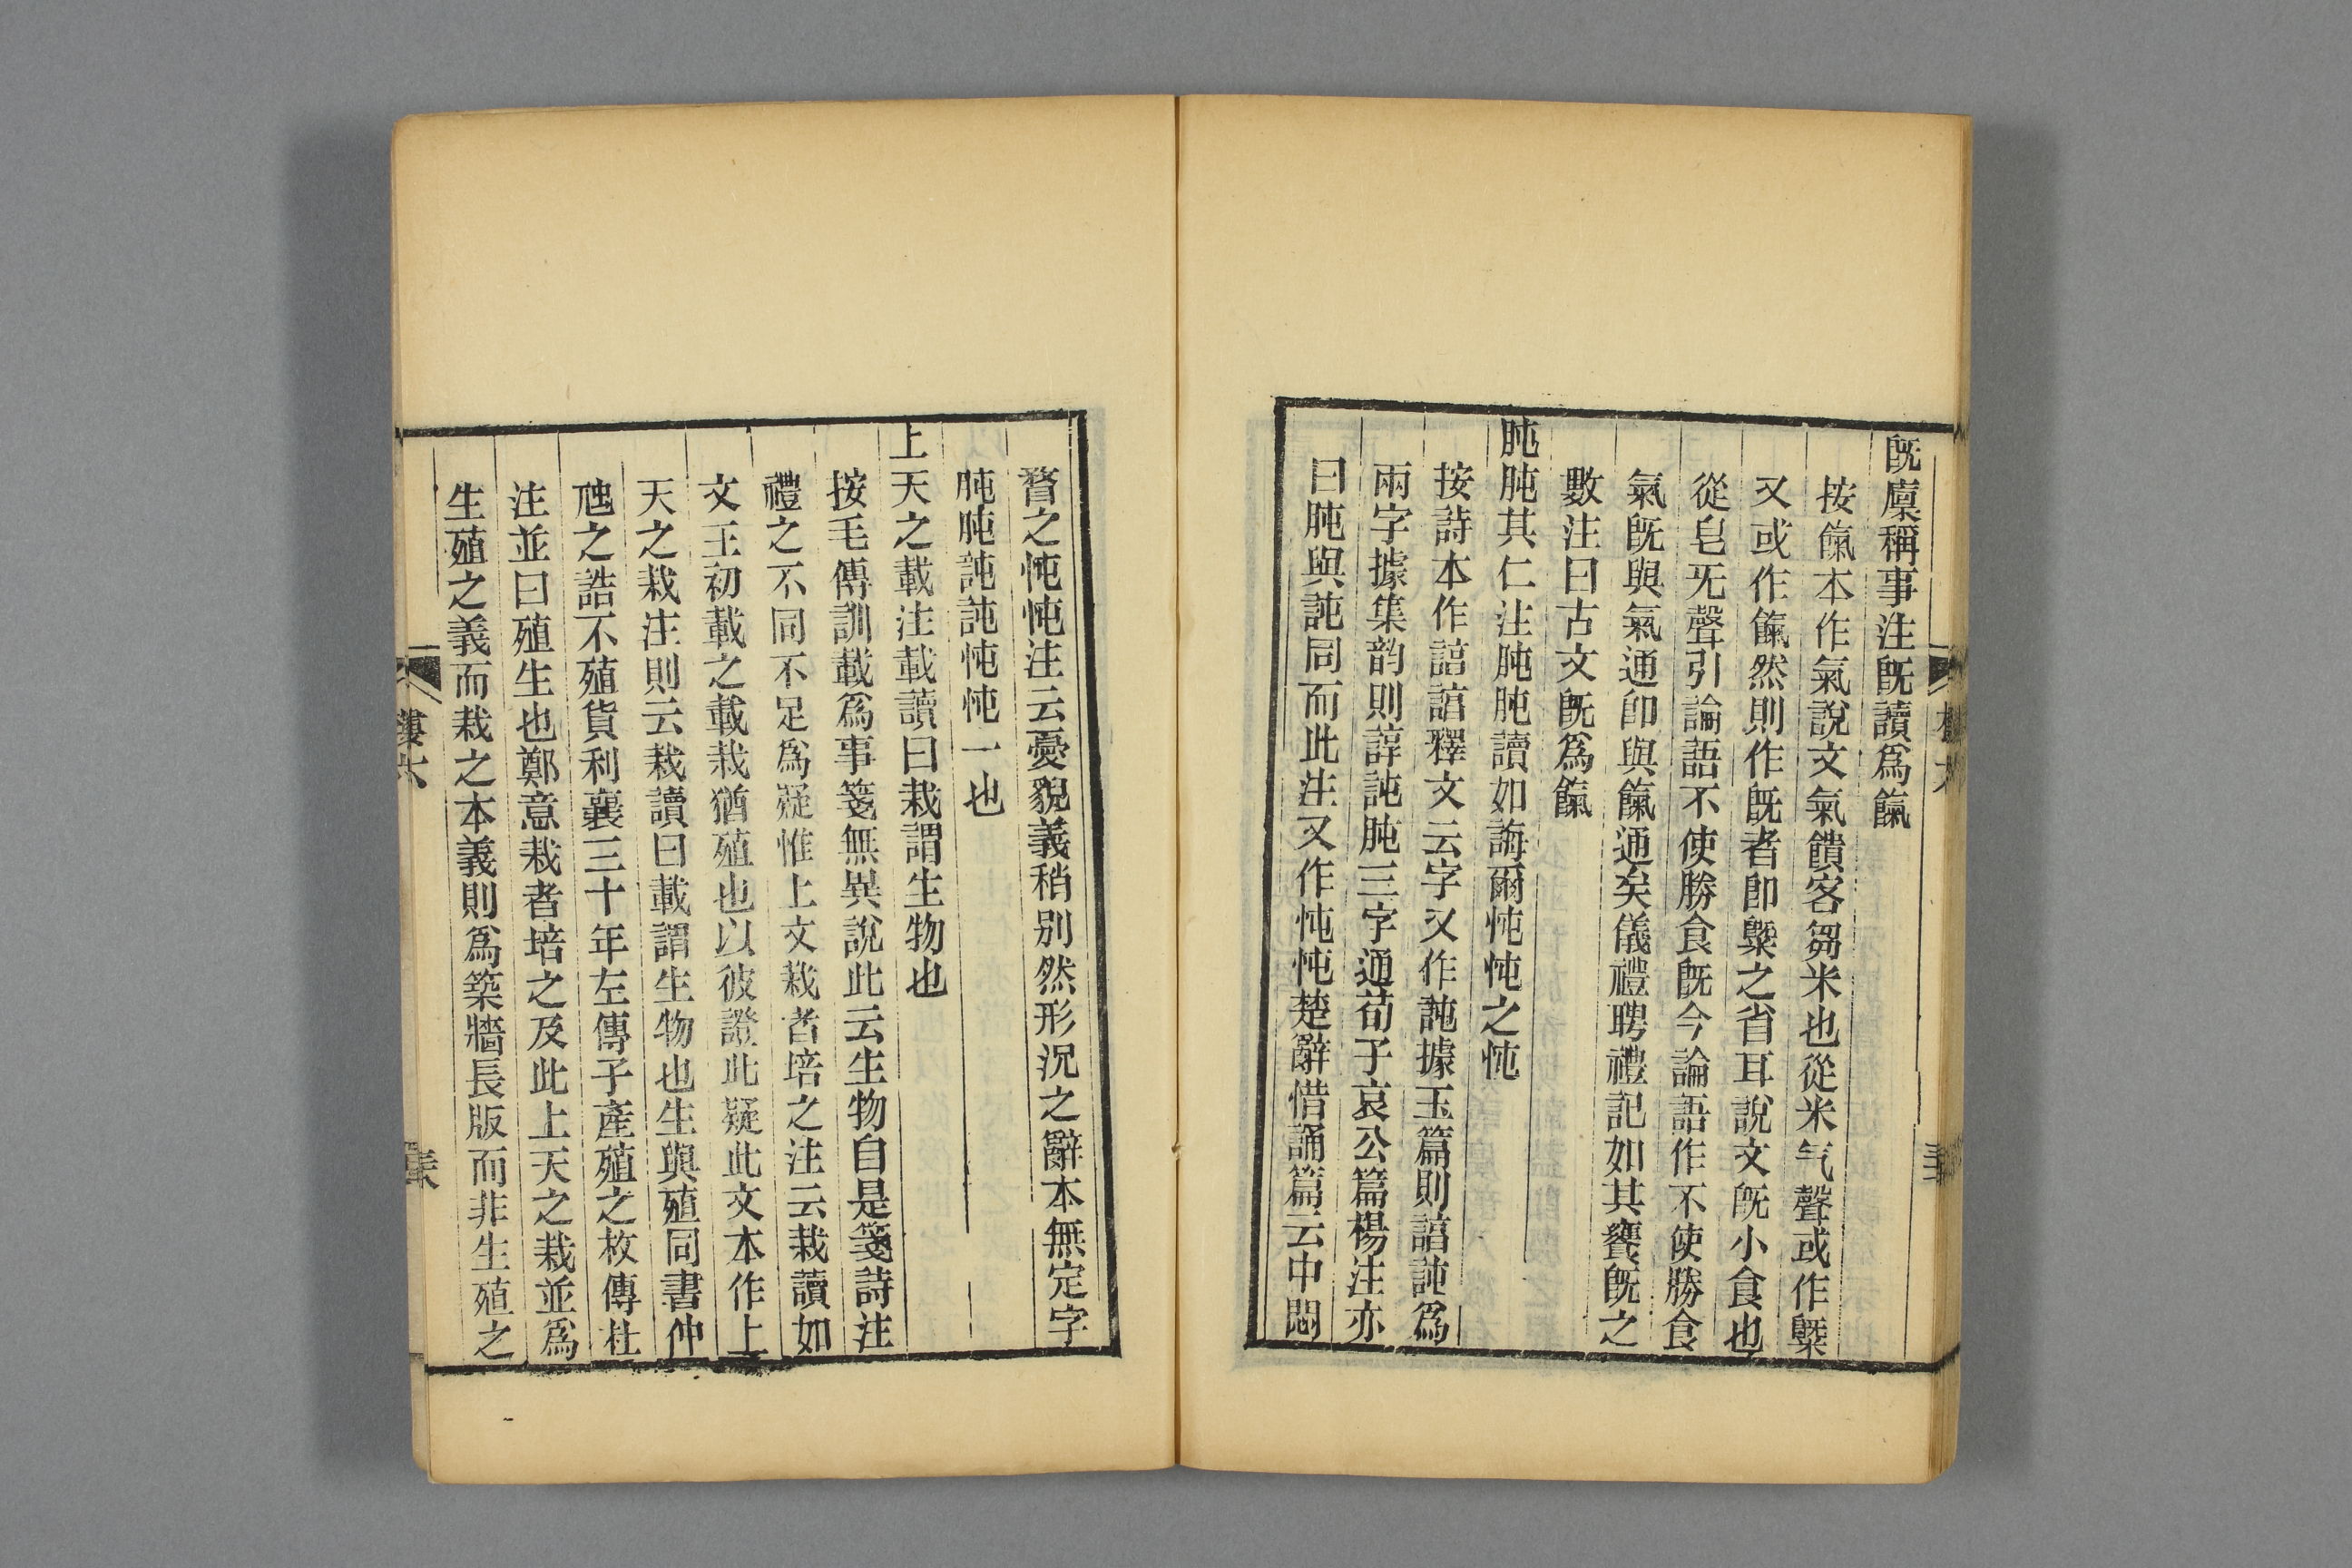 既廩稱事注既讀爲餼
按餼本作氣說文氣饋客芻米也從米气聲或作䊠
又或作餼然則作既者卽䊠之省耳說文既小食也
從皀旡聲引論語不使勝食既今論語作不使勝食
氣既與氣通卽與餼通矣儀禮聘禮記如其饔既之
數注曰古文既爲餼
肫肫其仁注肫肫讀如誨爾忳忳之忳
按詩本作諄諄釋文云字又作訰據玉篇則諄訰爲
兩字據集韵則諄訰肫三字通荀子哀公篇楊注亦
曰肫與訰同而此注又作忳忳楚辭惜誦篇云中悶
瞀之忳忳注云憂貌義稍别然形況之辭本無定字
肫肫訰訰忳忳一也
上天之載注載讀曰栽謂生物也
按毛傳訓載爲事箋無異說此云生物自是箋詩注
禮之不同不足爲疑惟上文栽者培之注云栽讀如
文王初載之載栽猶殖也以彼證此疑此文本作上
天之栽注則云栽讀曰載謂生物也生與殖同書仲
虺之誥不殖貨利襄三十年左傳子產殖之枚傳杜
注並曰殖生也鄭意栽者培之及此上天之栽並爲
生殖之義而栽之本義則爲築牆長版而非生殖之